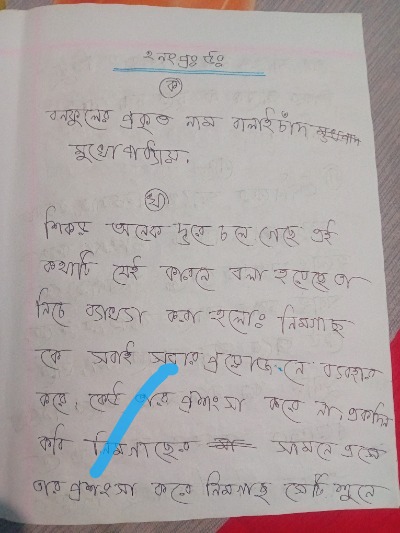 ১নং প্রঃ উঃ
ক
বনফুলের প্রকৃত নাম বলাইচাঁদ
মুখোপাধ্যায়.
খ
শিকড় অনেক দূরে চলে গেছে এই
কথাটি যেই কারনে বলা হয়েছে তা
নিচে ব্যাখ্যা করা হলোঃ নিমগাছ
কে সবাই সবার প্রয়োজনে ব্যবহার
করে, কেউ তার প্রশংসা করে না, একদিন
কবি নিমগাছের সামনে এসে
তার প্রশংসা করে নিমগাছ সেটি শুনে